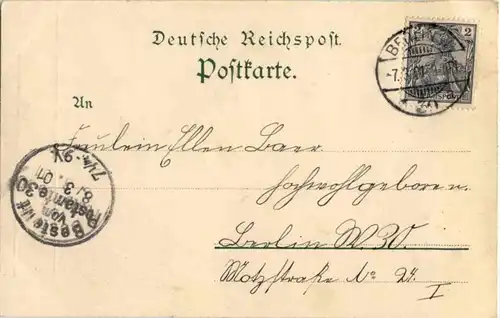 Deutsche Reichspost
Postkarte.
An
Fräulein Ellen Baer
Hochwohlgeboren.
Berlin W. 30
Motzstraße No 24.
I
2
Bestellt
vom
Postamte 30
8/3. 01
7¼-9V